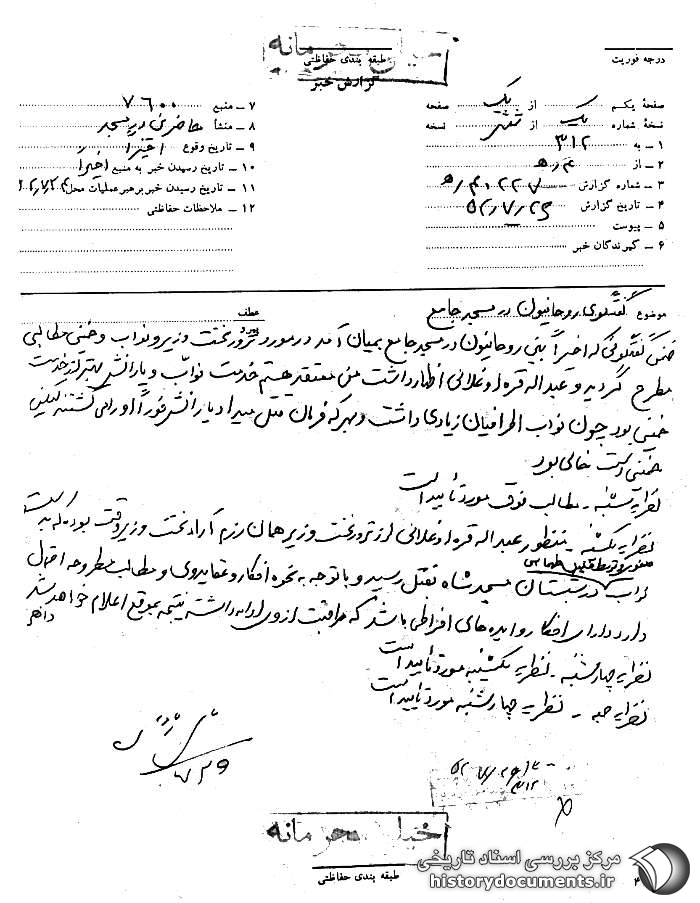 خیلی محرمانه
درجه فوریت
طبقه بندی حفاظتی
گزارش خبر
صفحهٔ یکم یک از یک صفحه
نسخهٔ شماره یک از نسخه
۱ ــ به ۳۱۲
۲ ــ از ه‍
۳ ــ شماره گزارش
۴ ــ تاریخ گزارش
۵ ــ پیوست
۶ ــ گیرندگان خبر
۷ ــ منبع ۷۶۰۰
۸ ــ منشأ در مسجد
۹ ــ تاریخ وقوع اخیراً
۱۰ ــ تاریخ رسیدن خبر به منبع اخیراً
۱۱ ــ تاریخ رسیدن خبر برهبر عملیات محل
۱۲ ــ ملاحظات حفاظتی
موضوع گفتگوی روحانیون در مسجد جامع
عطف
پیرو
ضمن گفتگوئی که اخیراً بین روحانیون در مسجد جامع بمیان آمد در مورد ترور نخست وزیر و نواب و خمینی مطالبی
مطرح گردید و عبداله قره اوغلانی اظهار داشت من معتقد هستم خدمت نواب و یارانش بهتر از خدمت
خمینی بود چون نواب اطرافیان زیادی داشت و بهر که فرمان قتل میداد یارانش فوراً او را می کشتند لیکن
خمینی دست خالی بود
نظریه شنبه ــ مطالب فوق مورد تأیید است
نظریه یکشنبه ــ منظور عبداله قره اوغلانی از ترور نخست وزیر همان رزم آرا نخست وزیر وقت بوده که بدست
نواب در شبستان مسجد شاه بقتل رسید و با توجه به نحوه افکار و عقاید وی و مطالب مطروحه احتمال
دارد دارای افکار و ایده های افراطی باشد که مراقبت از وی ادامه داشته نتیجه بموقع اعلام خواهد شد
نظریه چهارشنبه ــ نظریه یکشنبه مورد تأیید است
نظریه جمعه ــ نظریه چهارشنبه مورد تأیید است
خیلی محرمانه
طبقه بندی حفاظتی
مرکز بررسی اسناد تاریخی
historydocuments.ir